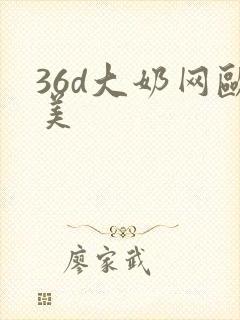 36d大奶网歐
美
廖家武